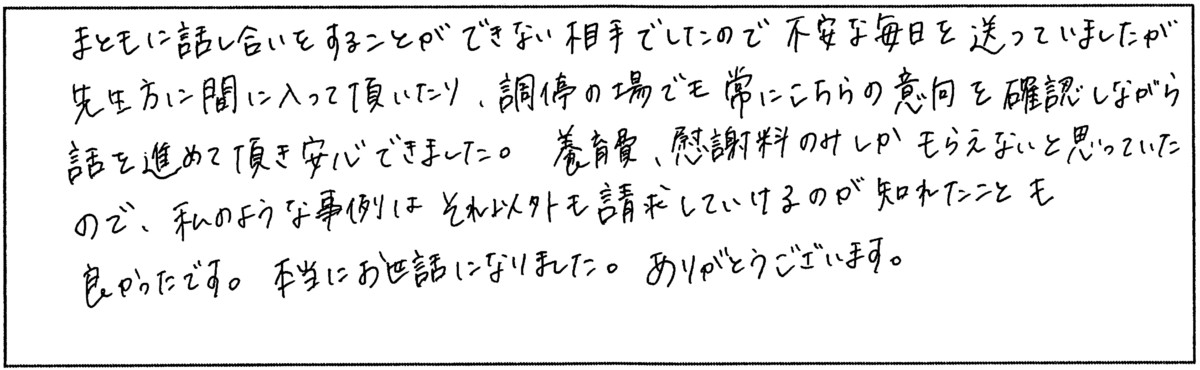 まともに話し合いをすることができない相手でしたので不安な毎日を送っていましたが
先生方に間に入って頂いたり、調停の場でも常にこちらの意向を確認しながら
話を進めて頂き安心できました。養育費、慰謝料のみしかもらえないと思っていた
ので、私のような事例はそれ以外も請求していけるのが知れたことも
良かったです。本当にお世話になりました。ありがとうございます。